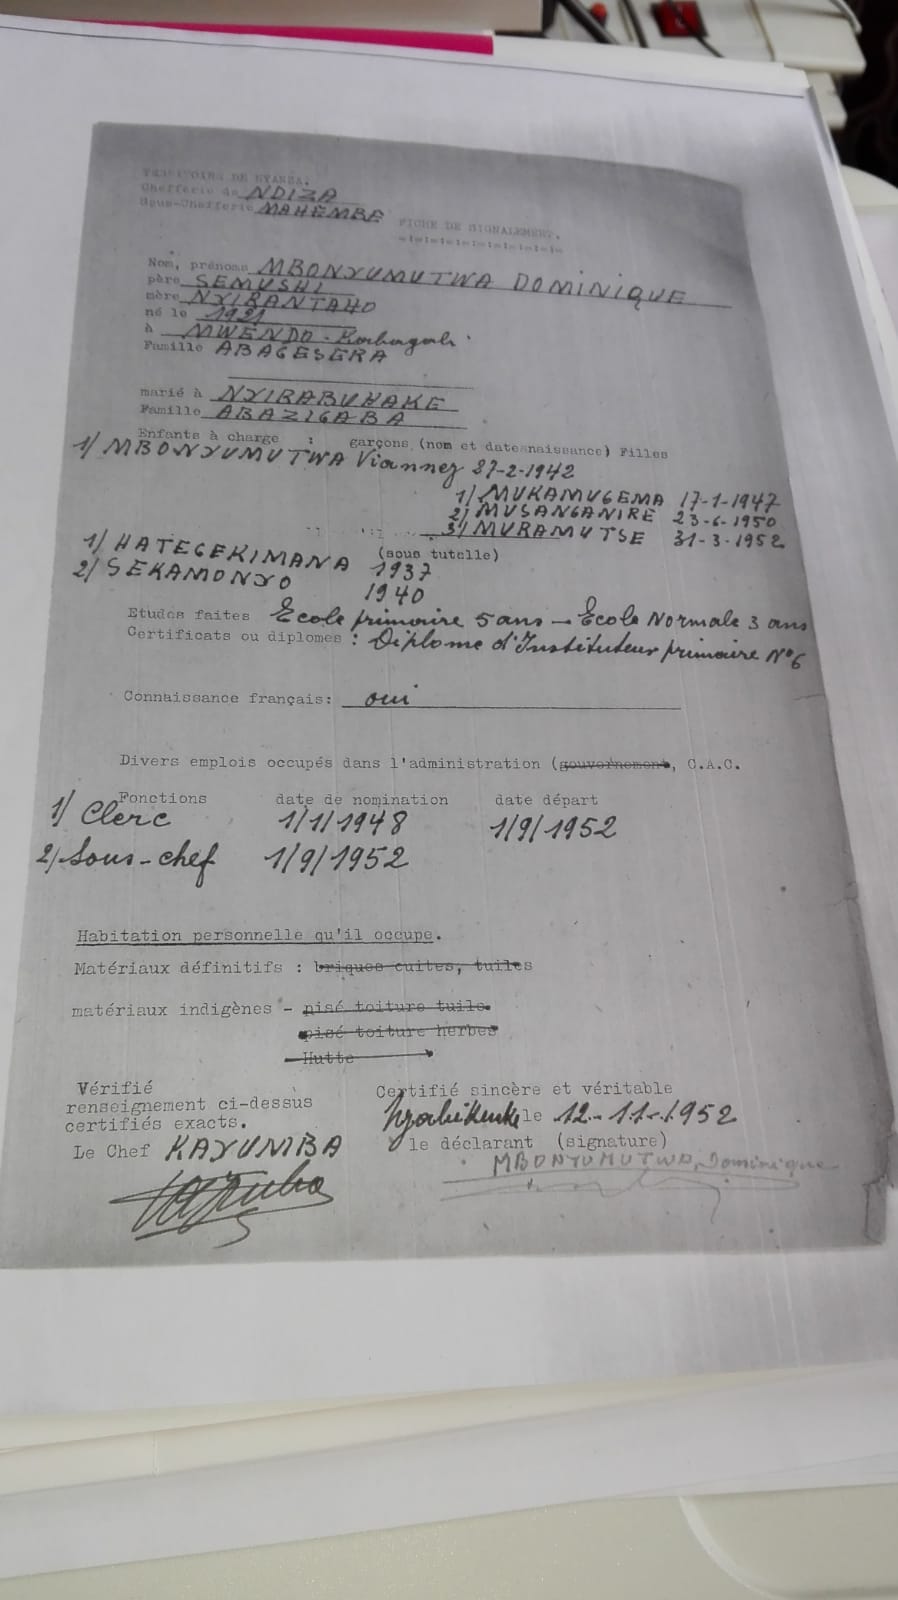 TERRITOIRE DE NYANZA.
Chefferie de NDIZA
Sous-Chefferie MAHEMBE
FICHE DE SIGNALEMENT.
Nom, prénoms MBONYUMUTWA DOMINIQUE
père SEMUSHI
mère NYIRANTAHO
né le 1921
à MWENDO - Kabagali
Famille ABAGESERA
marié à NYIRABUHAKE
Famille ABAZIGABA
Enfants à charge : garçons (nom et date naissance) Filles
1/ MBONYUMUTWA Vianney 27-2-1942
1/ MUKAMUGEMA 17-1-1947
2/ MUSANGANIRE 23-6-1950
3/ MURAMUTSE 31-3-1952
(sous tutelle)
1/ HATEGEKIMANA 1937
2/ SEKAMONYO 1940
Etudes faites Ecole primaire 5 ans - Ecole Normale 3 ans
Certificats ou diplomes : Diplome d'Instituteur primaire N°6
Connaissance français: oui
Divers emplois occupés dans l'administration (gouvernement, C.A.C.
Fonctions date de nomination date départ
1/ Clerc 1/1/1948 1/9/1952
2/ Sous-chef 1/9/1952
Habitation personnelle qu'il occupe.
Matériaux définitifs : briques cuites, tuiles
matériaux indigènes - pisé toiture tuile
pisé toiture herbes
Hutte
Vérifié
renseignement ci-dessus
certifiés exacts.
Le Chef KAYUMBA
Certifié sincère et véritable
le 12-11-1952
le déclarant (signature)
MBONYUMUTWA, Dominique